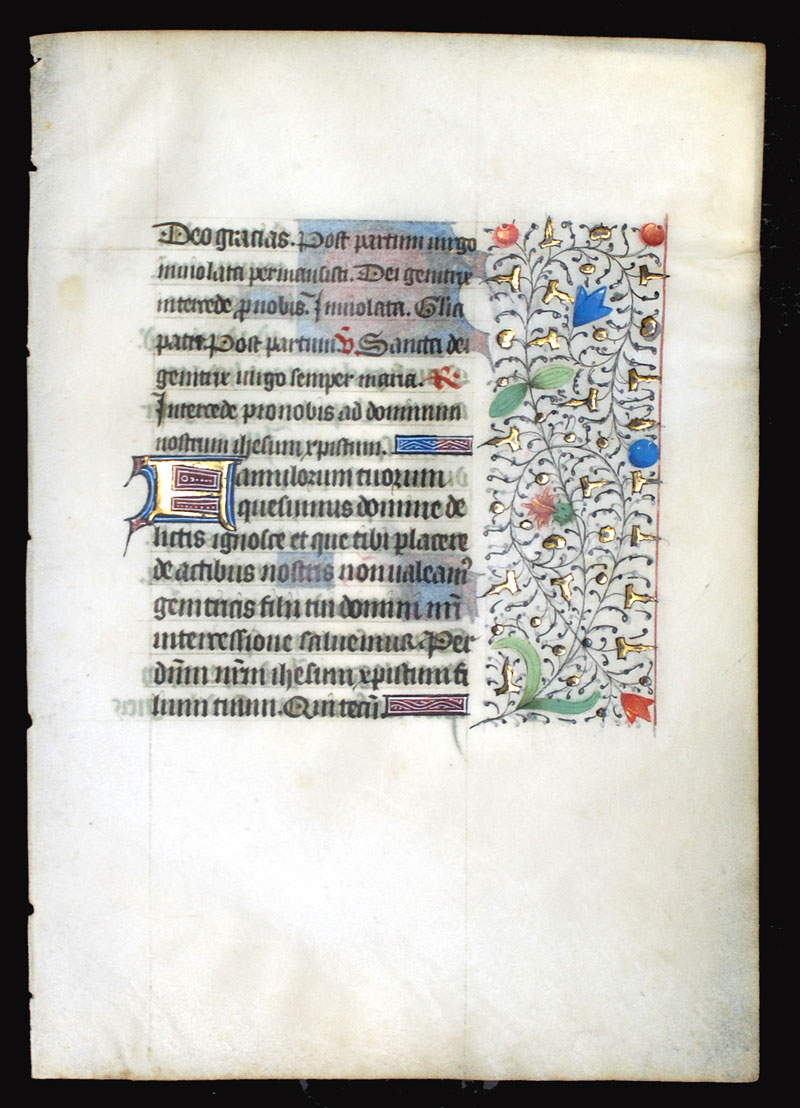 Deo gracias. Post partum uirgo
inuiolata permansisti. Dei genitrix
intercede pro nobis. Inuiolata. Glia
patri. Post partum. V. Sancta dei
genitrix uirgo semper maria. R.
Intercede pro nobis ad dominum
nostrum ihesum xpistum.
Famulorum tuorum
quesumus domine de
lictis ignosce et que tibi placere
de actibus nostris non ualeam9
genitricis filii tui domini nr̄i
intercessione saluemur. Per
dn̄m nr̄m ihesum xpistum fi
lium tuum. Qui tecū.